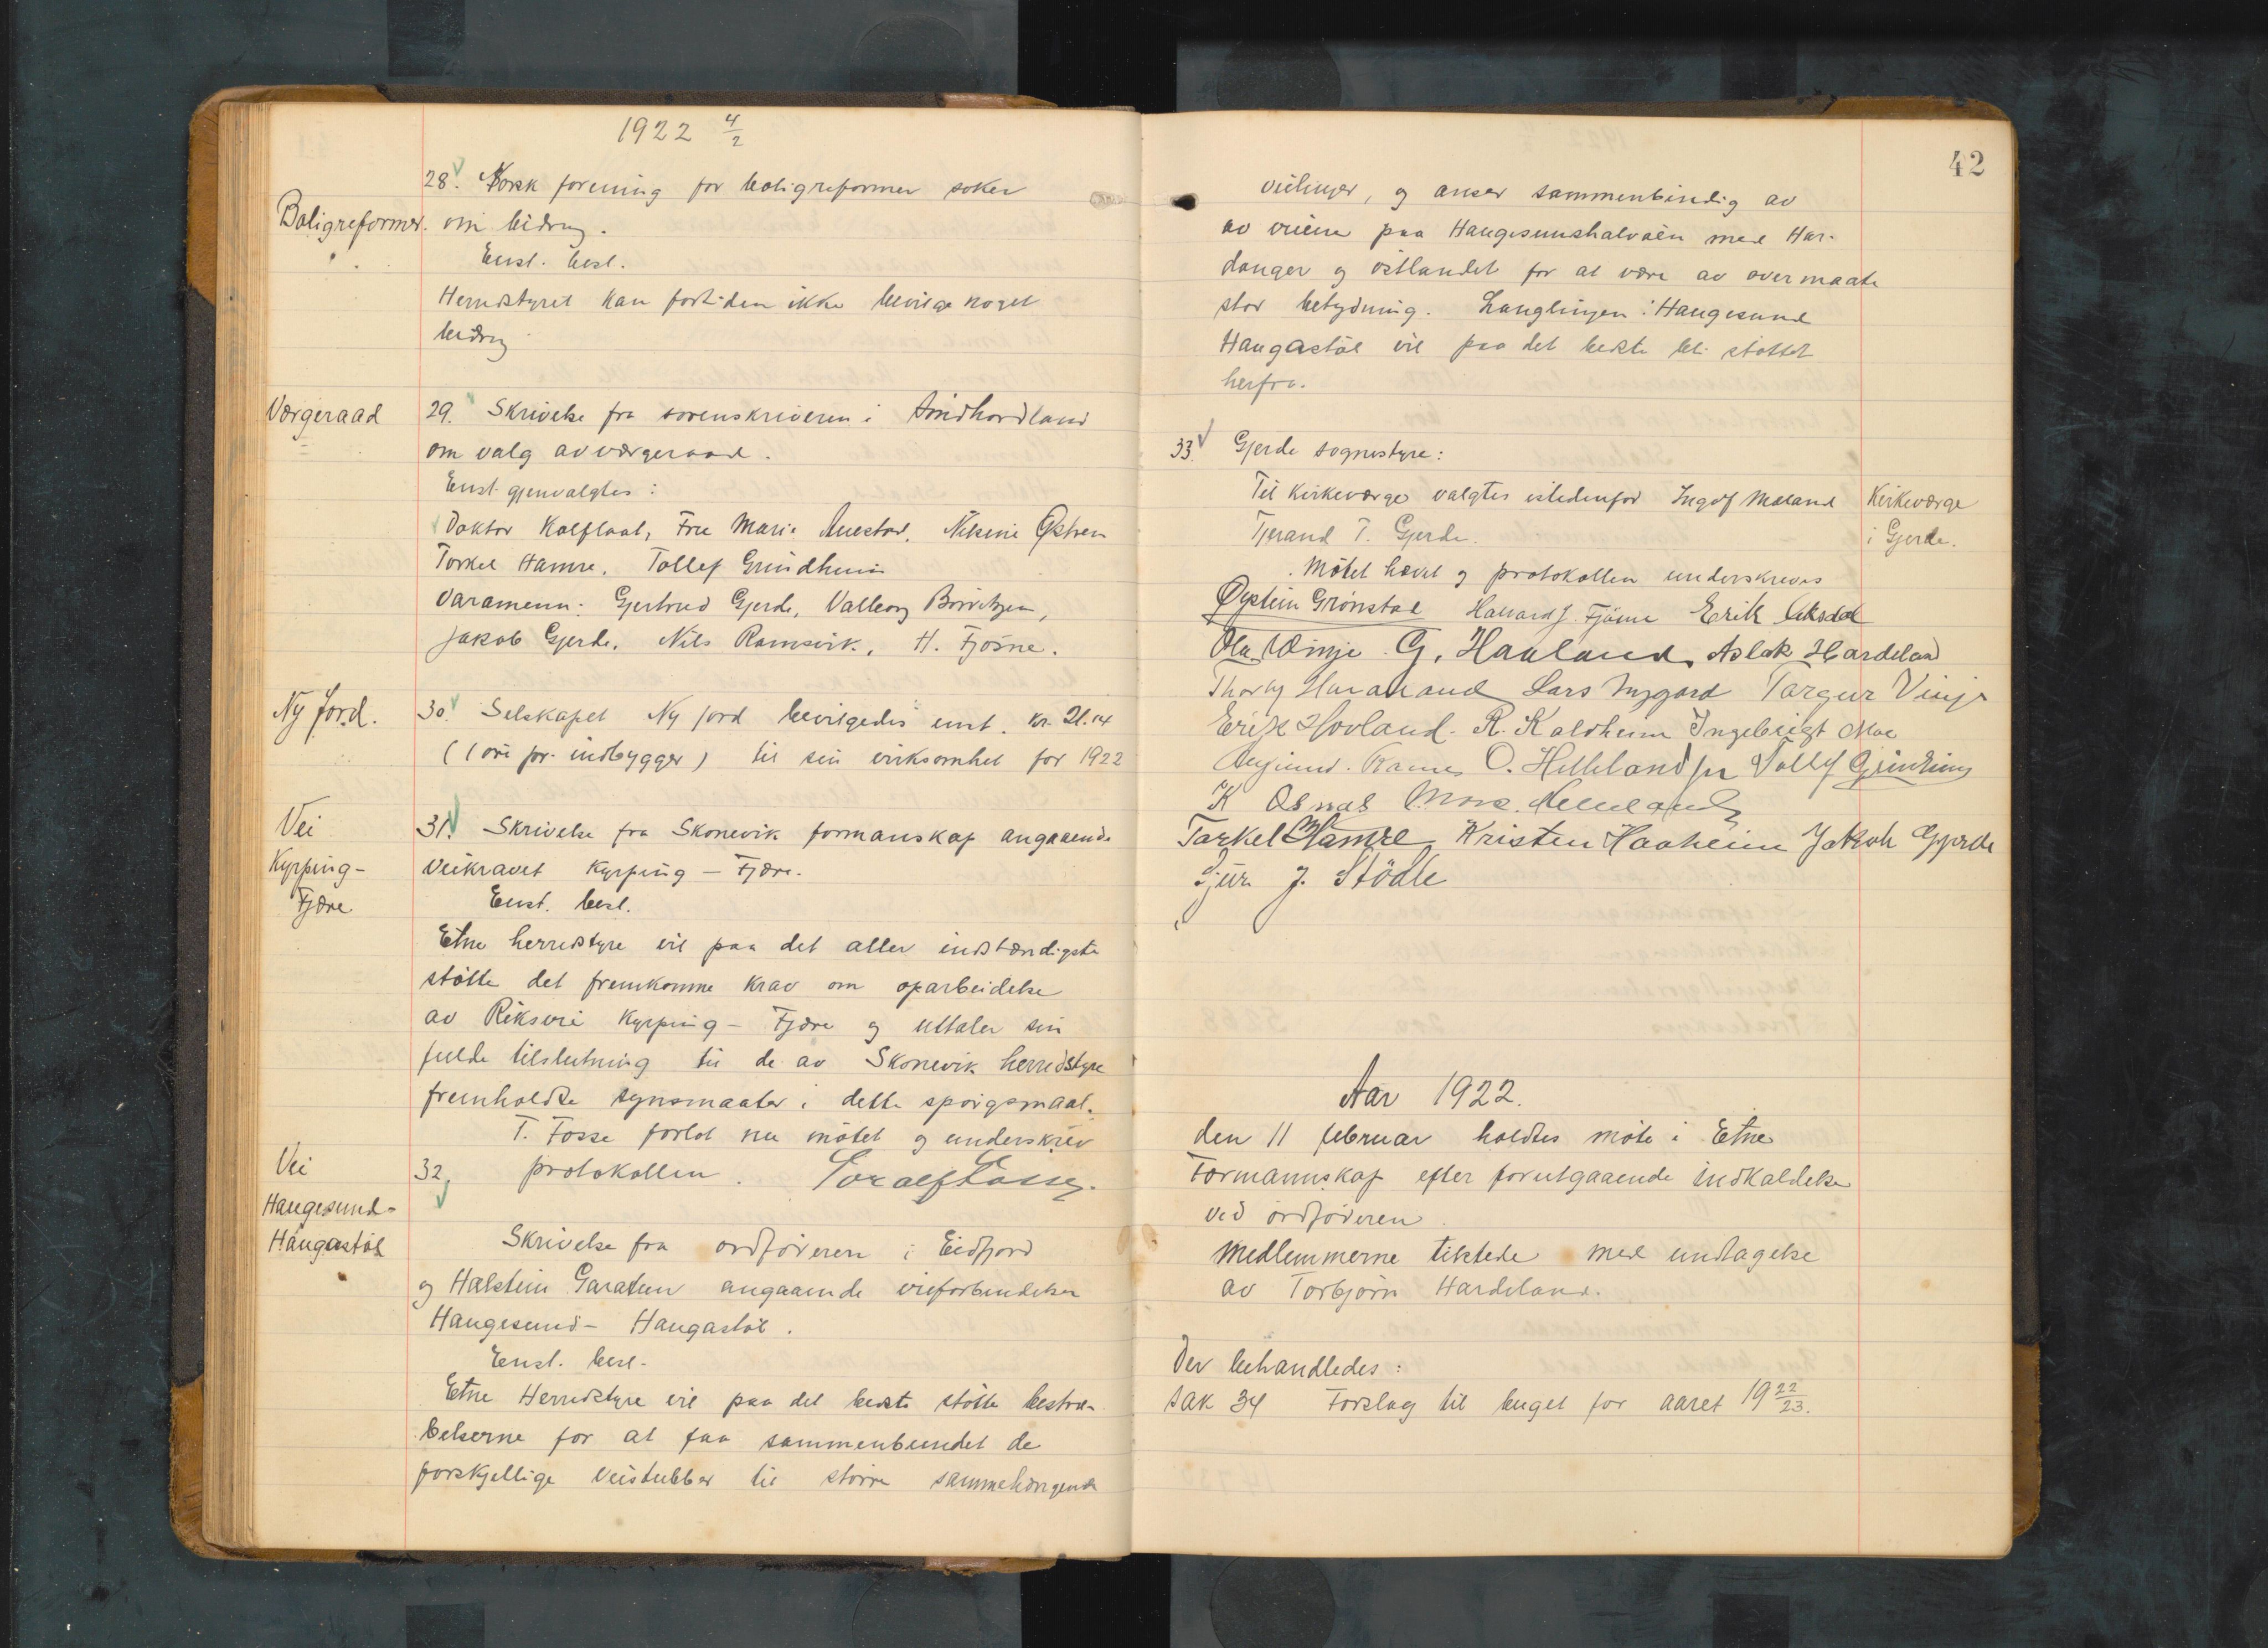 1922 4/2
28. Norsk forening for boligreformer søker
Boligreformer. om bidrag.
Enst. besl.
Herredstyret kan fortiden ikke bevilge noget
bidrag
Værgeraad
29. Skrivelse fra sorenskriveren i Søndhordland
om valg av værgeraad.
Enst. gjenvalgtes:
Doktor Kalflaat, Fru Marie Anestad, Nilsine Østren
Torkel Hamre, Tollef Grindheim
Varamenn: Gjertrud Gjerde, Valborg
Jakob Gjerde, Nils Ramsvik, H. Fjøsne.
Ny Jord.
30. Selskapet Ny jord bevilgedes enst. kr. 21.14
(1 øre pr. indbygger) til sin virksomhet for 1922
Vei
Kyrping-
Fjære
31. Skrivelse fra Skonevik formanskap angaaende
veikravet Kyrping - Fjære.
Enst. besl.
Etne herredstyre vil paa det aller indstændigste
støtte det fremkomne krav om oparbeidelse
av Riksvei Kyrping - Fjære og uttaler sin
fulde tilslutning til de av Skonevik herredstyre
fremholdte synsmaater i dette spørgsmaal.
T. Fosse forlot nu møtet og underskrev
protokollen. Toralf Fosse.
Vei
Haugesund-
Haugastøl
32.
Skrivelse fra ordføreren i Eidfjord
og Halstein Garatun angaaende veiforbindelsen
Haugesund - Haugastøl.
Enst. besl.
Etne Herredstyre vil paa det beste støtte bestræ-
belserne for at faa sammenbundet de
forskjellige veistubber til større sammehængende
42
veilinjer, og anser sammenbindig av
av veiene paa Haugesunshalvøen med Har-
danger og østlandet for at være av overmaate
stor betydning. Langlinjen: Haugesund
Haugastøl vil paa det beste bli støttet
herfra.
33. Gjerde sognestyre:
Til kirkeværge valgtes istedenfor Ingolf Møland
Tjerand T. Gjerde.
Kirkeværge
i Gjerde.
Møtet hævet og protokollen underskreves
Øystein Grønstad Halvard J. Fjøsne Erik Aksdal
Ola Vinje G. Haaland, Aslak Hardeland
Lars Nygard Torgeir Vinje
Erik Hovland. R. Kaldheim Ingebrigt Moe
O. Helleland jr Tollef Grindheim
K Osnas Mons Helleland
Torkel Hamre Kristen Haaheim Jakob Gjerde
Sjur J. Stödle
Aar 1922.
den 11 februar holdtes møte i Etne
Formannskap efter forutgaaende indkaldelse
ved ordføreren.
Medlemmerne tilstede med undtagelse
av Torbjørn Hardeland.
Der behandledes:
Sak 34 Forslag til buget for aaret 19 22/23.